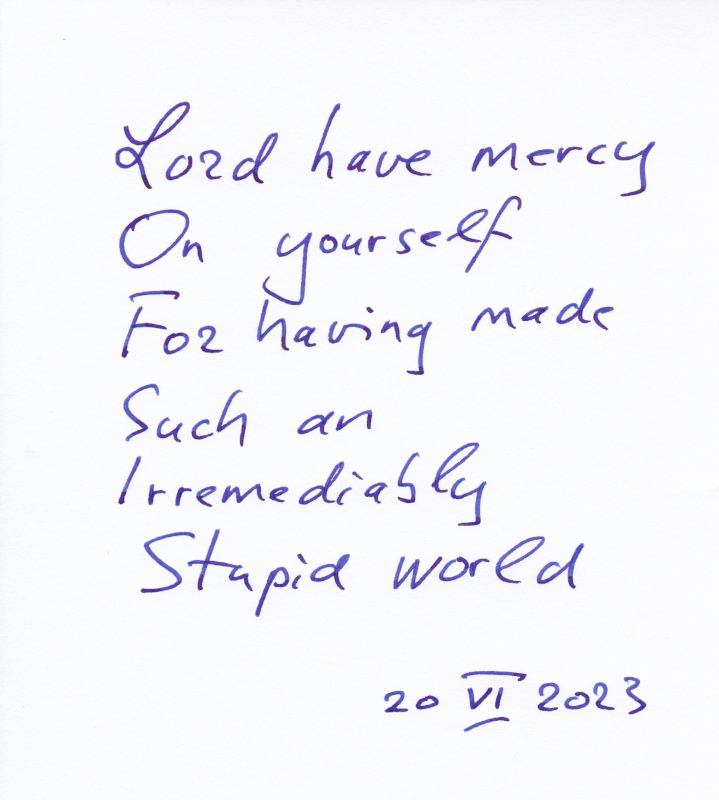 Lord have mercy
On yourself
For having made
Such an
Irremediably
Stupid world
20 VI 2023